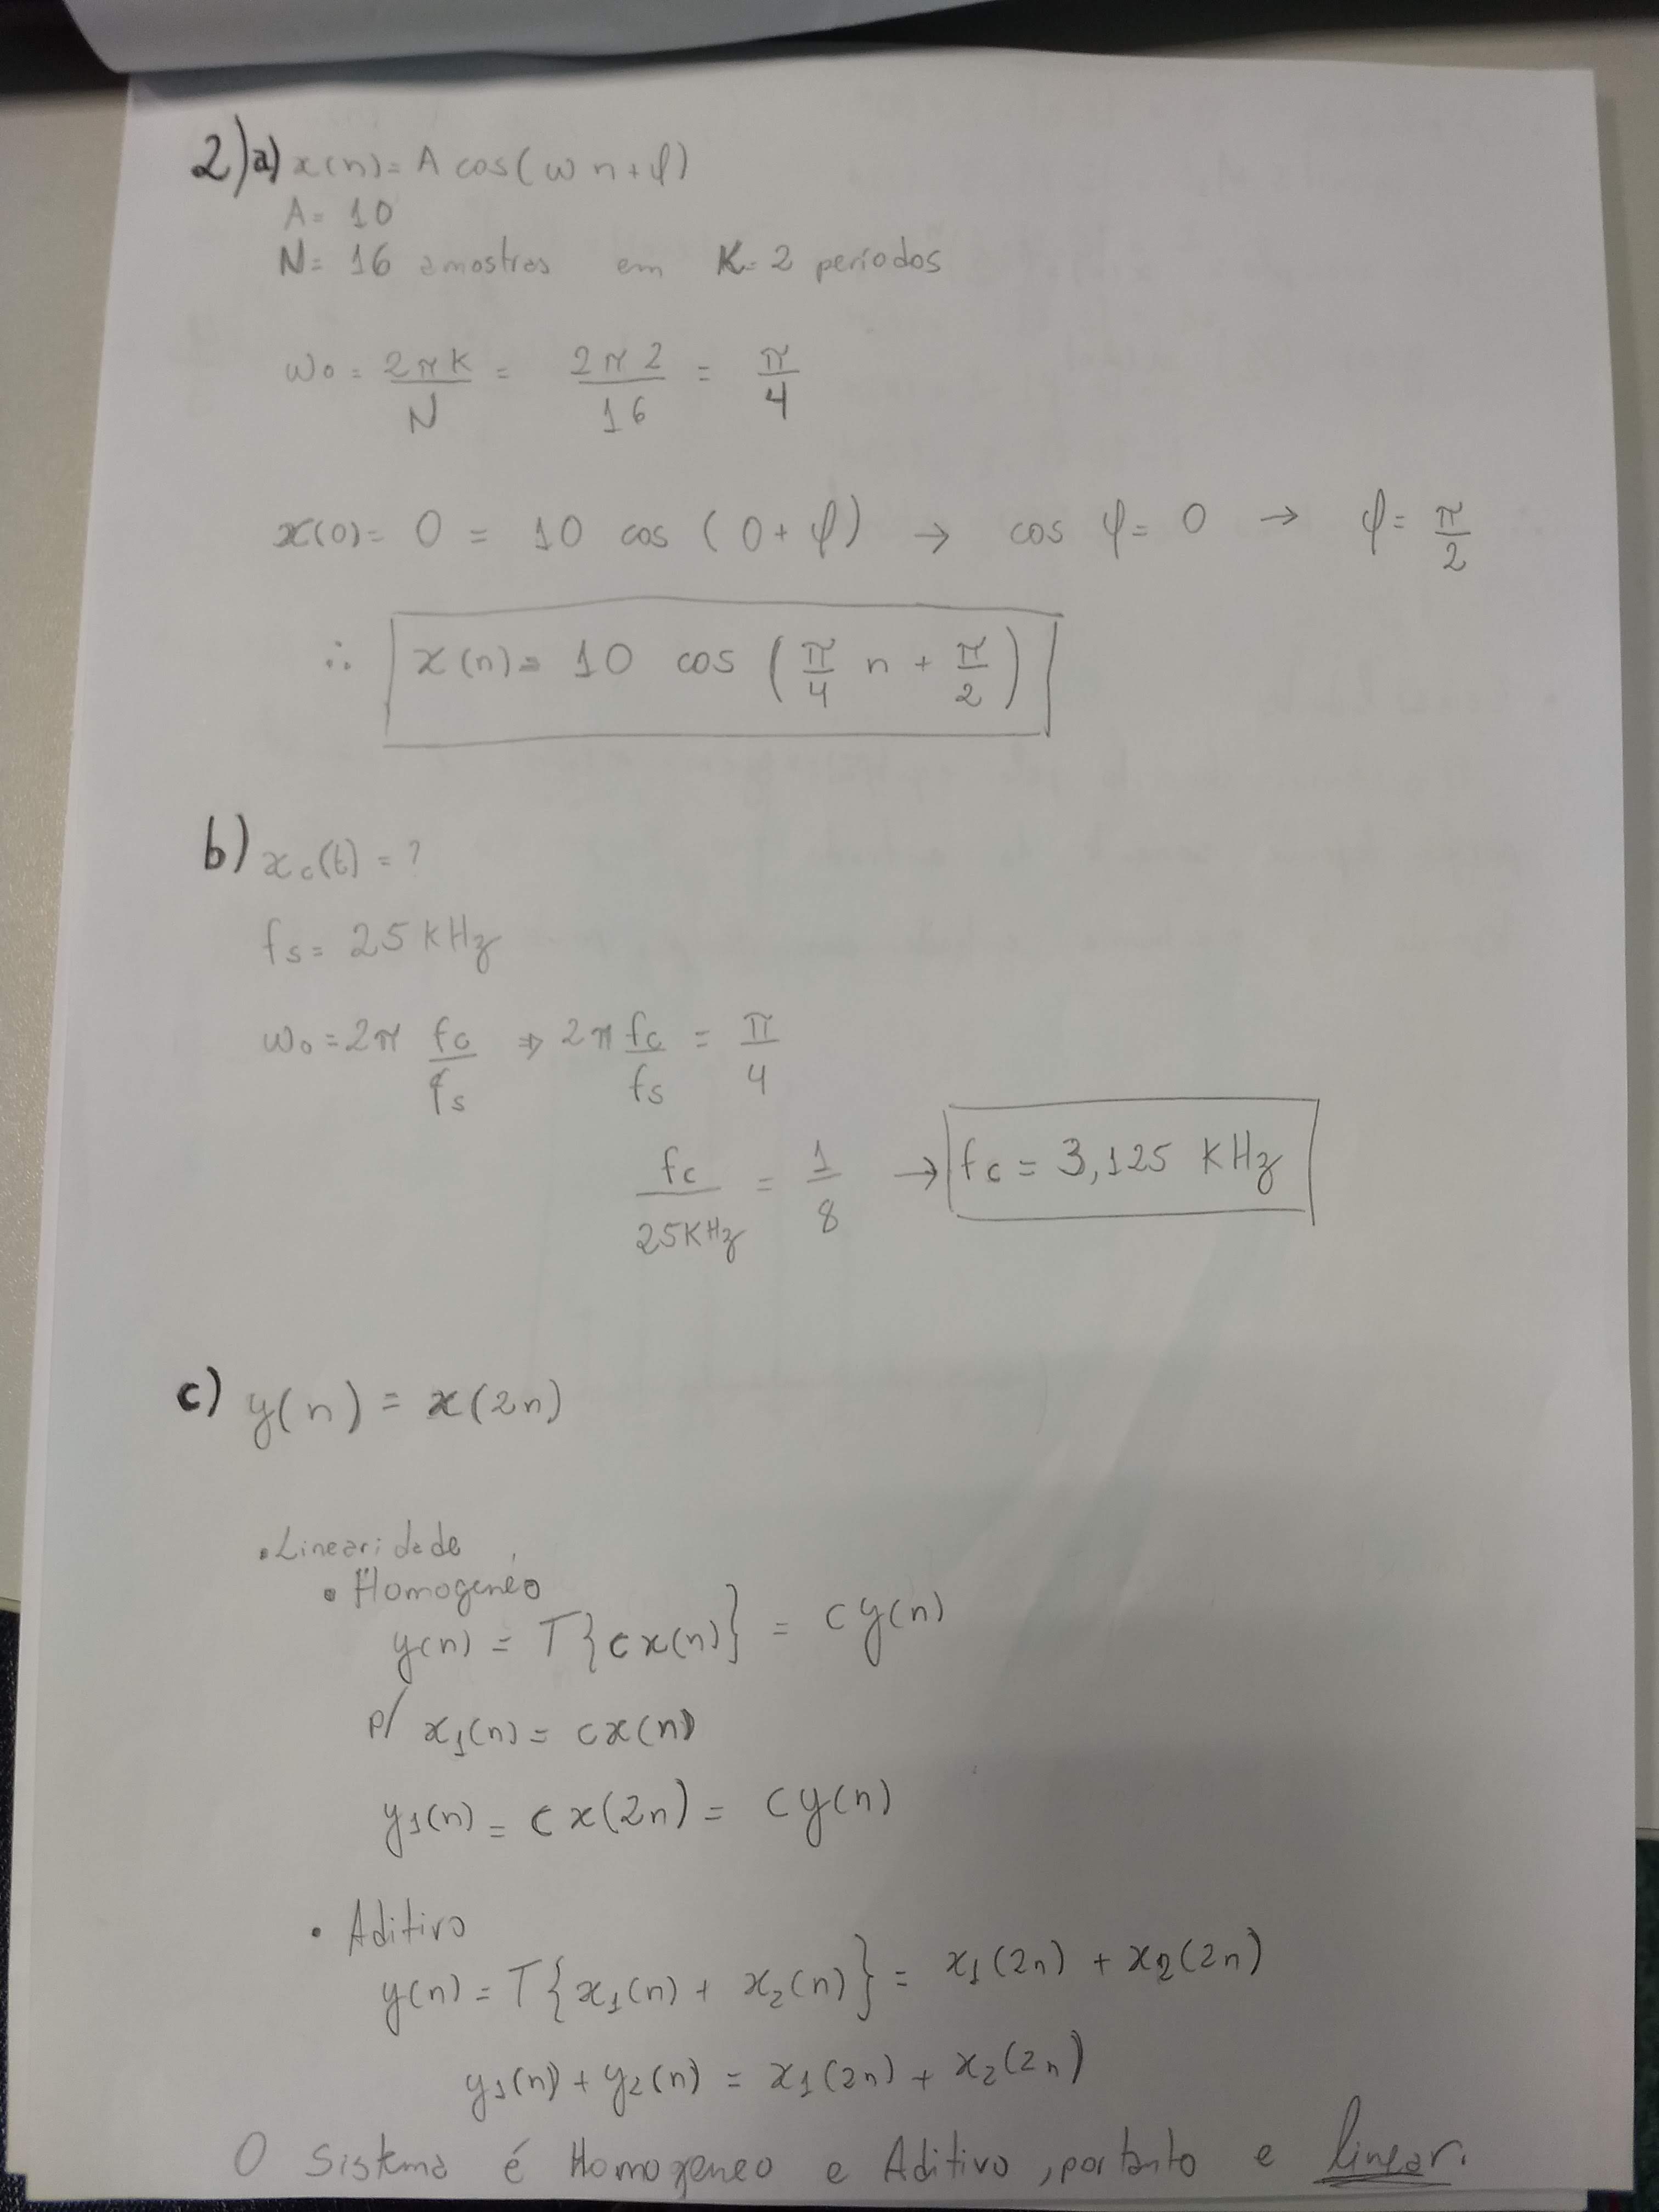 2) a) x(n) = A cos(ω n + φ)
A = 10
N = 16 amostras em K = 2 períodos
ω₀ = 2πK/N = 2π2/16 = π/4
x(0) = 0 = 10 cos (0 + φ) → cos φ = 0 → φ = π/2
∴ x(n) = 10 cos (π/4 n + π/2)
b) x_c(t) = ?
fs = 25 KHz
ω₀ = 2π fc/fs ⇒ 2π fc/fs = π/4
fc/25KHz = 1/8 → fc = 3,125 KHz
c) y(n) = x(2n)
• Linearidade
• Homogenéo
y(n) = T{c x(n)} = c y(n)
p/ x₁(n) = c x(n)
y₁(n) = c x(2n) = c y(n)
• Aditivo
y(n) = T{x₁(n) + x₂(n)} = x₁(2n) + x₂(2n)
y₁(n) + y₂(n) = x₁(2n) + x₂(2n)
O Sistema é Homogeneo e Aditivo, portanto e linear.